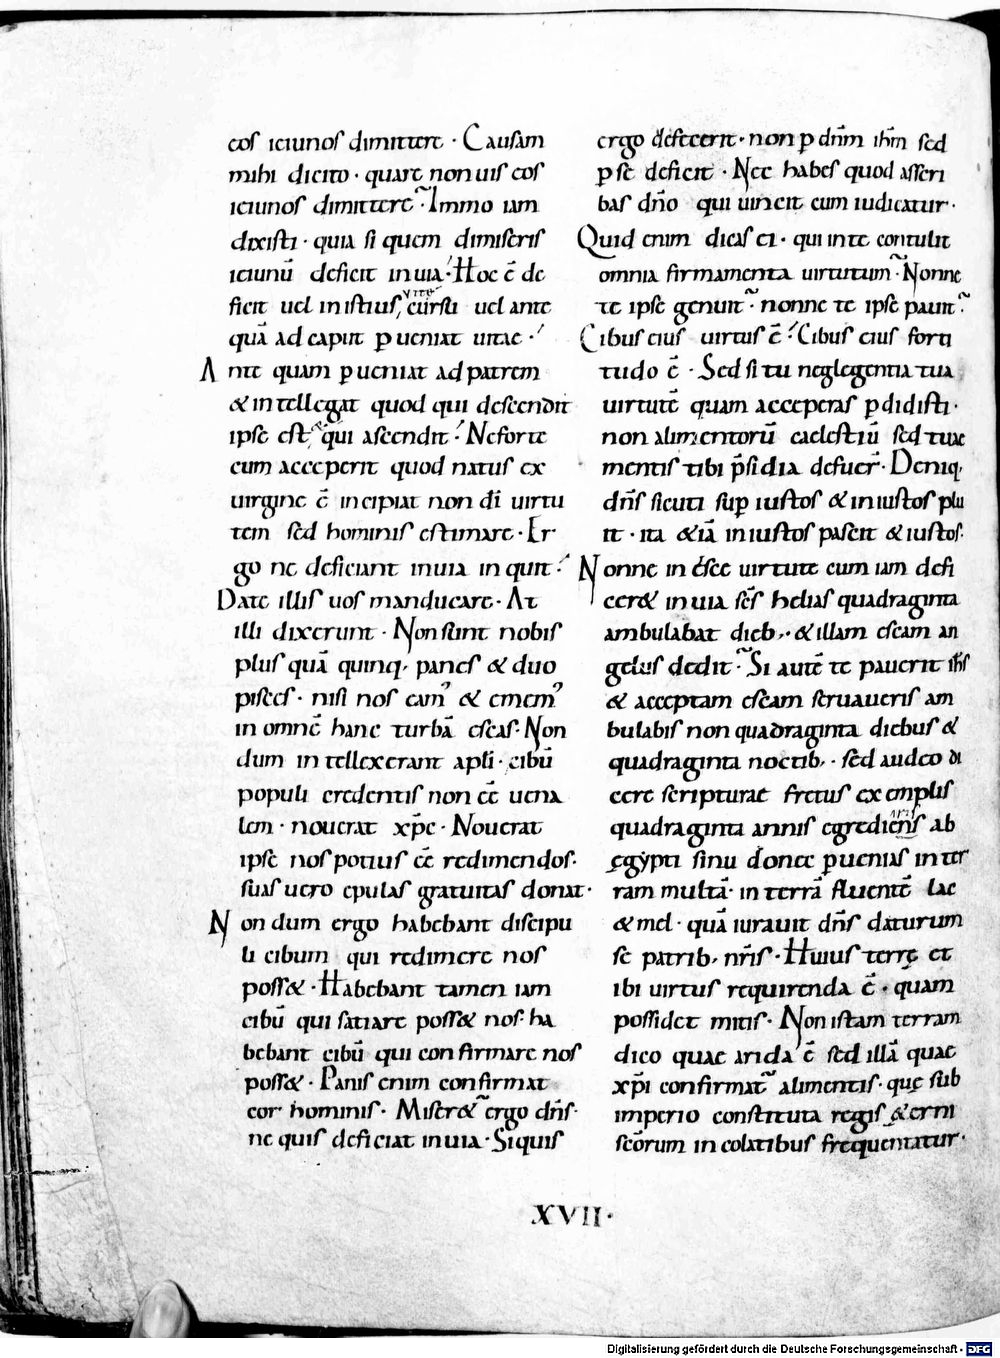 eos ieiunos dimittere · Causam
mihi dicito · quare non uis eos
ieiunos dimittere · Immo iam
dixisti · quia si quem dimiseris
ieiunū deficit in uia · Hoc ē de
ficit uel in istius, uitę cursu uel ante
quā ad caput ꝑueniat uitae ·
Ante quam ꝑueniat ad patrem
& intellegat quod qui descendit
ipse est, & qui ascendit · Ne forte
cum acceperit quod natus ex
uirgine ē incipiat non dī uirtu
tem sed hominis estimare · Er
go ne deficiant in uia inquit ·
Date illis uos manducare · At
illi dixerunt · Non sunt nobis
plus quā quinq; panes & duo
pisces · nisi nos eam' & emem'
in omnē hanc turbā escas · Non
dum intellexerant apłi · cibū
populi credentis non ēē uena
lem · nouerat xp̄c · Nouerat
ipse nos potius ēē redimendos ·
suas uero epulas gratuitas donat ·
Nondum ergo habebant discipu
li cibum qui redimere nos
poss& · Habebant tamen iam
cibū qui satiare poss& nos · ha
bebant cibū qui confirmare nos
poss& · Panis enim confirmat
cor hominis · Miser& ergo dn̄s ·
ne quis deficiat in uia · Si quis
ergo defecerit · non ꝑ dn̄m ih̄m sed
ꝑ se deficit · Nec habes quod asseri
bas dn̄o qui uincit cum iudicatur ·
Quid enim dicas ei · qui in te contulit
omnia firmamenta uirtutum · Nonne
te ipse genuit · nonne te ipse pauit ·
Cibus eius uirtus ē · Cibus eius forti
tudo ē · Sed si tu neglegentia tua
uirtutē quam acceperas ꝑdidisti ·
non alimentorū caelestiū sed tuae
mentis tibi p̄sidia defuer̄ · Deniq;
dn̄s sicuti suꝑ iustos & iniustos plu
it · ita & iā iniustos pascit & iustos ·
Nonne in escę uirtute cum iam defi
cer& in uia sc̄s helias quadraginta
ambulabat dieb; · & illam escam an
gelus dedit · Si autē te pauerit ih̄s
& acceptam escam seruaueris am
bulabis non quadraginta diebus &
quadraginta noctib; · sed audeo di
cere scripturae fretus exemplis
quadraginta annis egrediens aris ab
ęgypti sinu donec ꝑuenias in ter
ram multā · in terrā fluentē lac
& mel · quā iurauit dn̄s daturum
se patrib; nr̄is · Huius terrę et
ibi uirtus requirenda ē · quam
possidet mitis · Non istam terram
dico quae arida ē sed illā quae
xp̄i confirmat alimentis · quę sub
imperio constituta regis ę&erni
sc̄orum incolatibus frequentatur ·
XVII ·
Digitalisierung gefördert durch die Deutsche Forschungsgemeinschaft - DFG